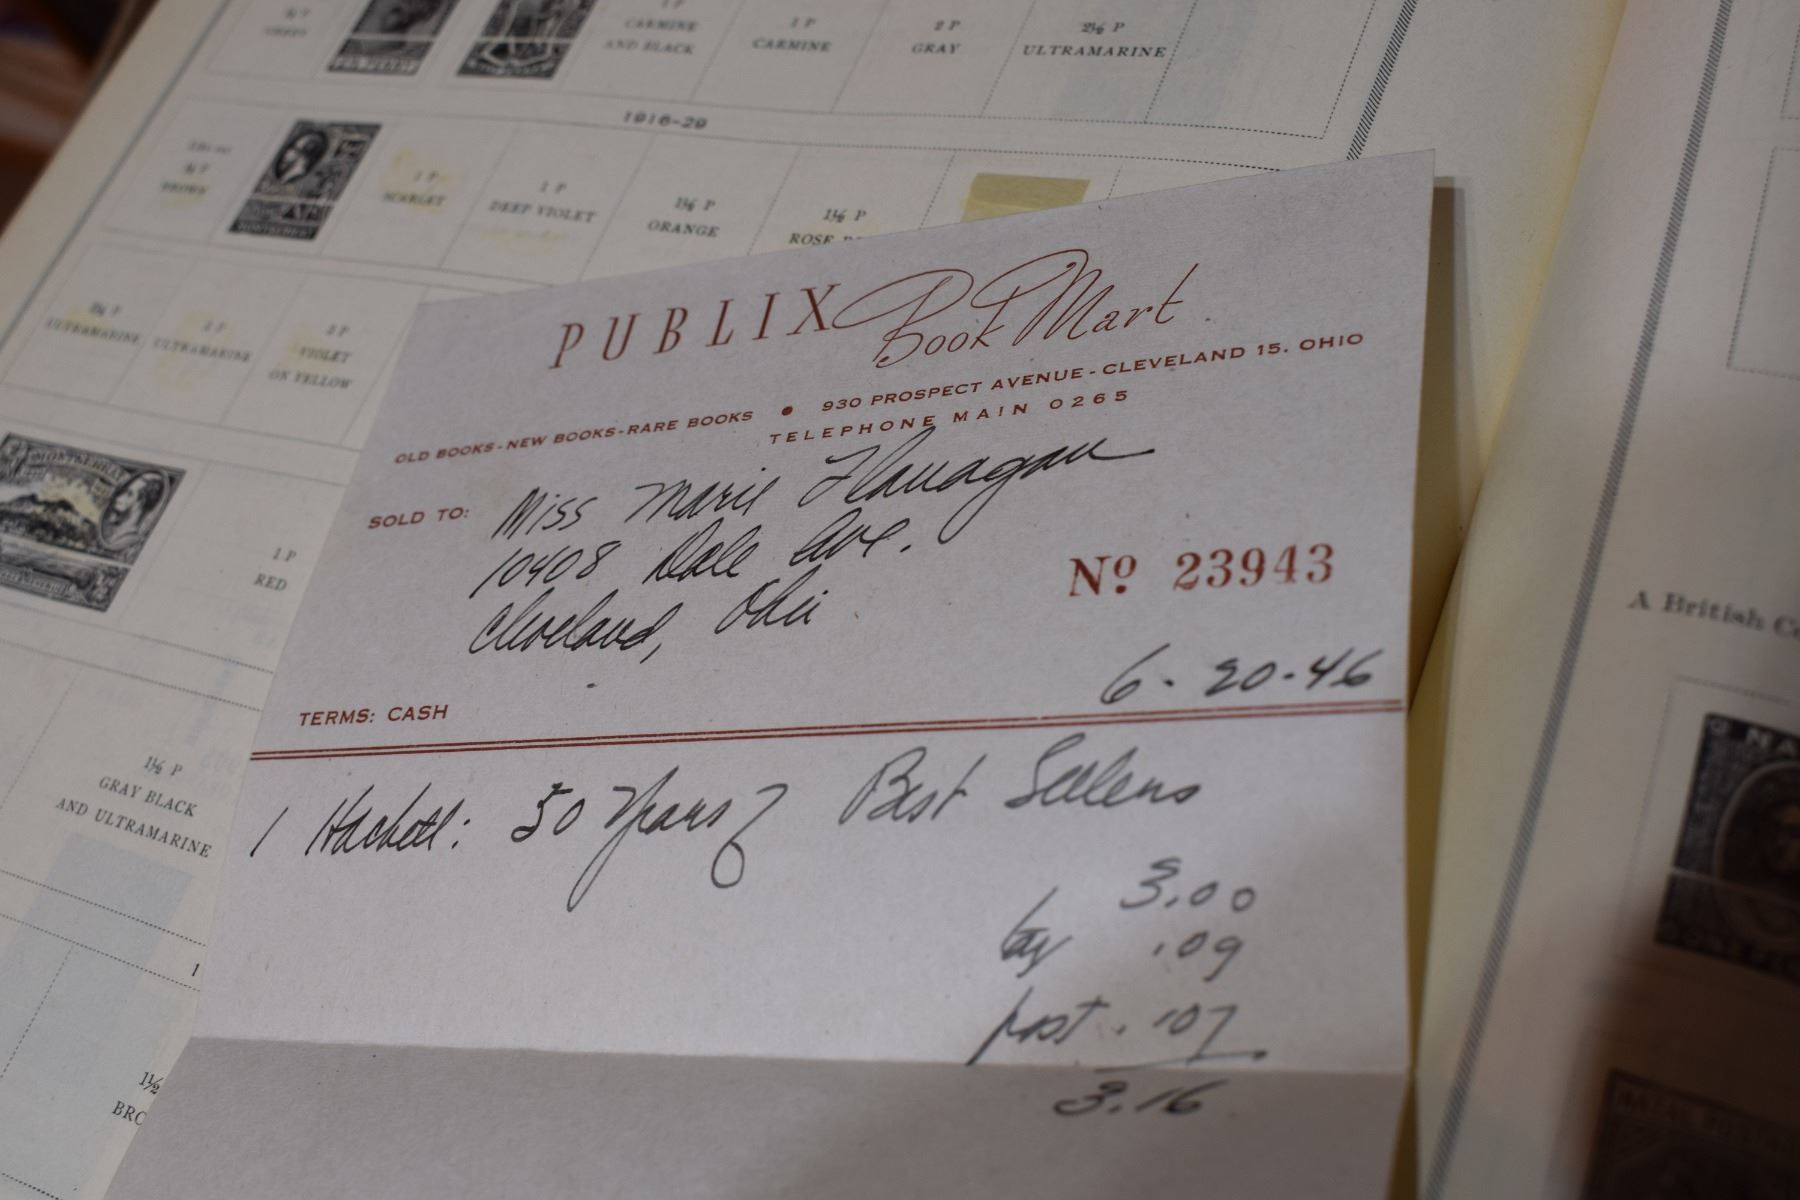 1 P
CARMINE
AND BLACK
1 P
CARMINE
2 P
GRAY
2½ P
ULTRAMARINE
1916-29
BROWN
MONTSERRAT
1 P
SCARLET
1 P
DEEP VIOLET
1½ P
ORANGE
1½ P
ROSE
ULTRAMARINE
ULTRAMARINE
2 P
VIOLET
ON YELLOW
MONTSERRAT
1 P
RED
1½ P
GRAY BLACK
AND ULTRAMARINE
1
1½
BRO
PUBLIX Book Mart
OLD BOOKS-NEW BOOKS-RARE BOOKS • 930 PROSPECT AVENUE-CLEVELAND 15. OHIO
TELEPHONE MAIN 0265
SOLD TO: Miss Marie Flanagan
10408 Dale Ave.
Cleveland, Ohio
Nº 23943
6-20-46
TERMS: CASH
1 Hackett: 50 Years of Best Sellers
3.00
tax .09
post. .07
3.16
A British Co